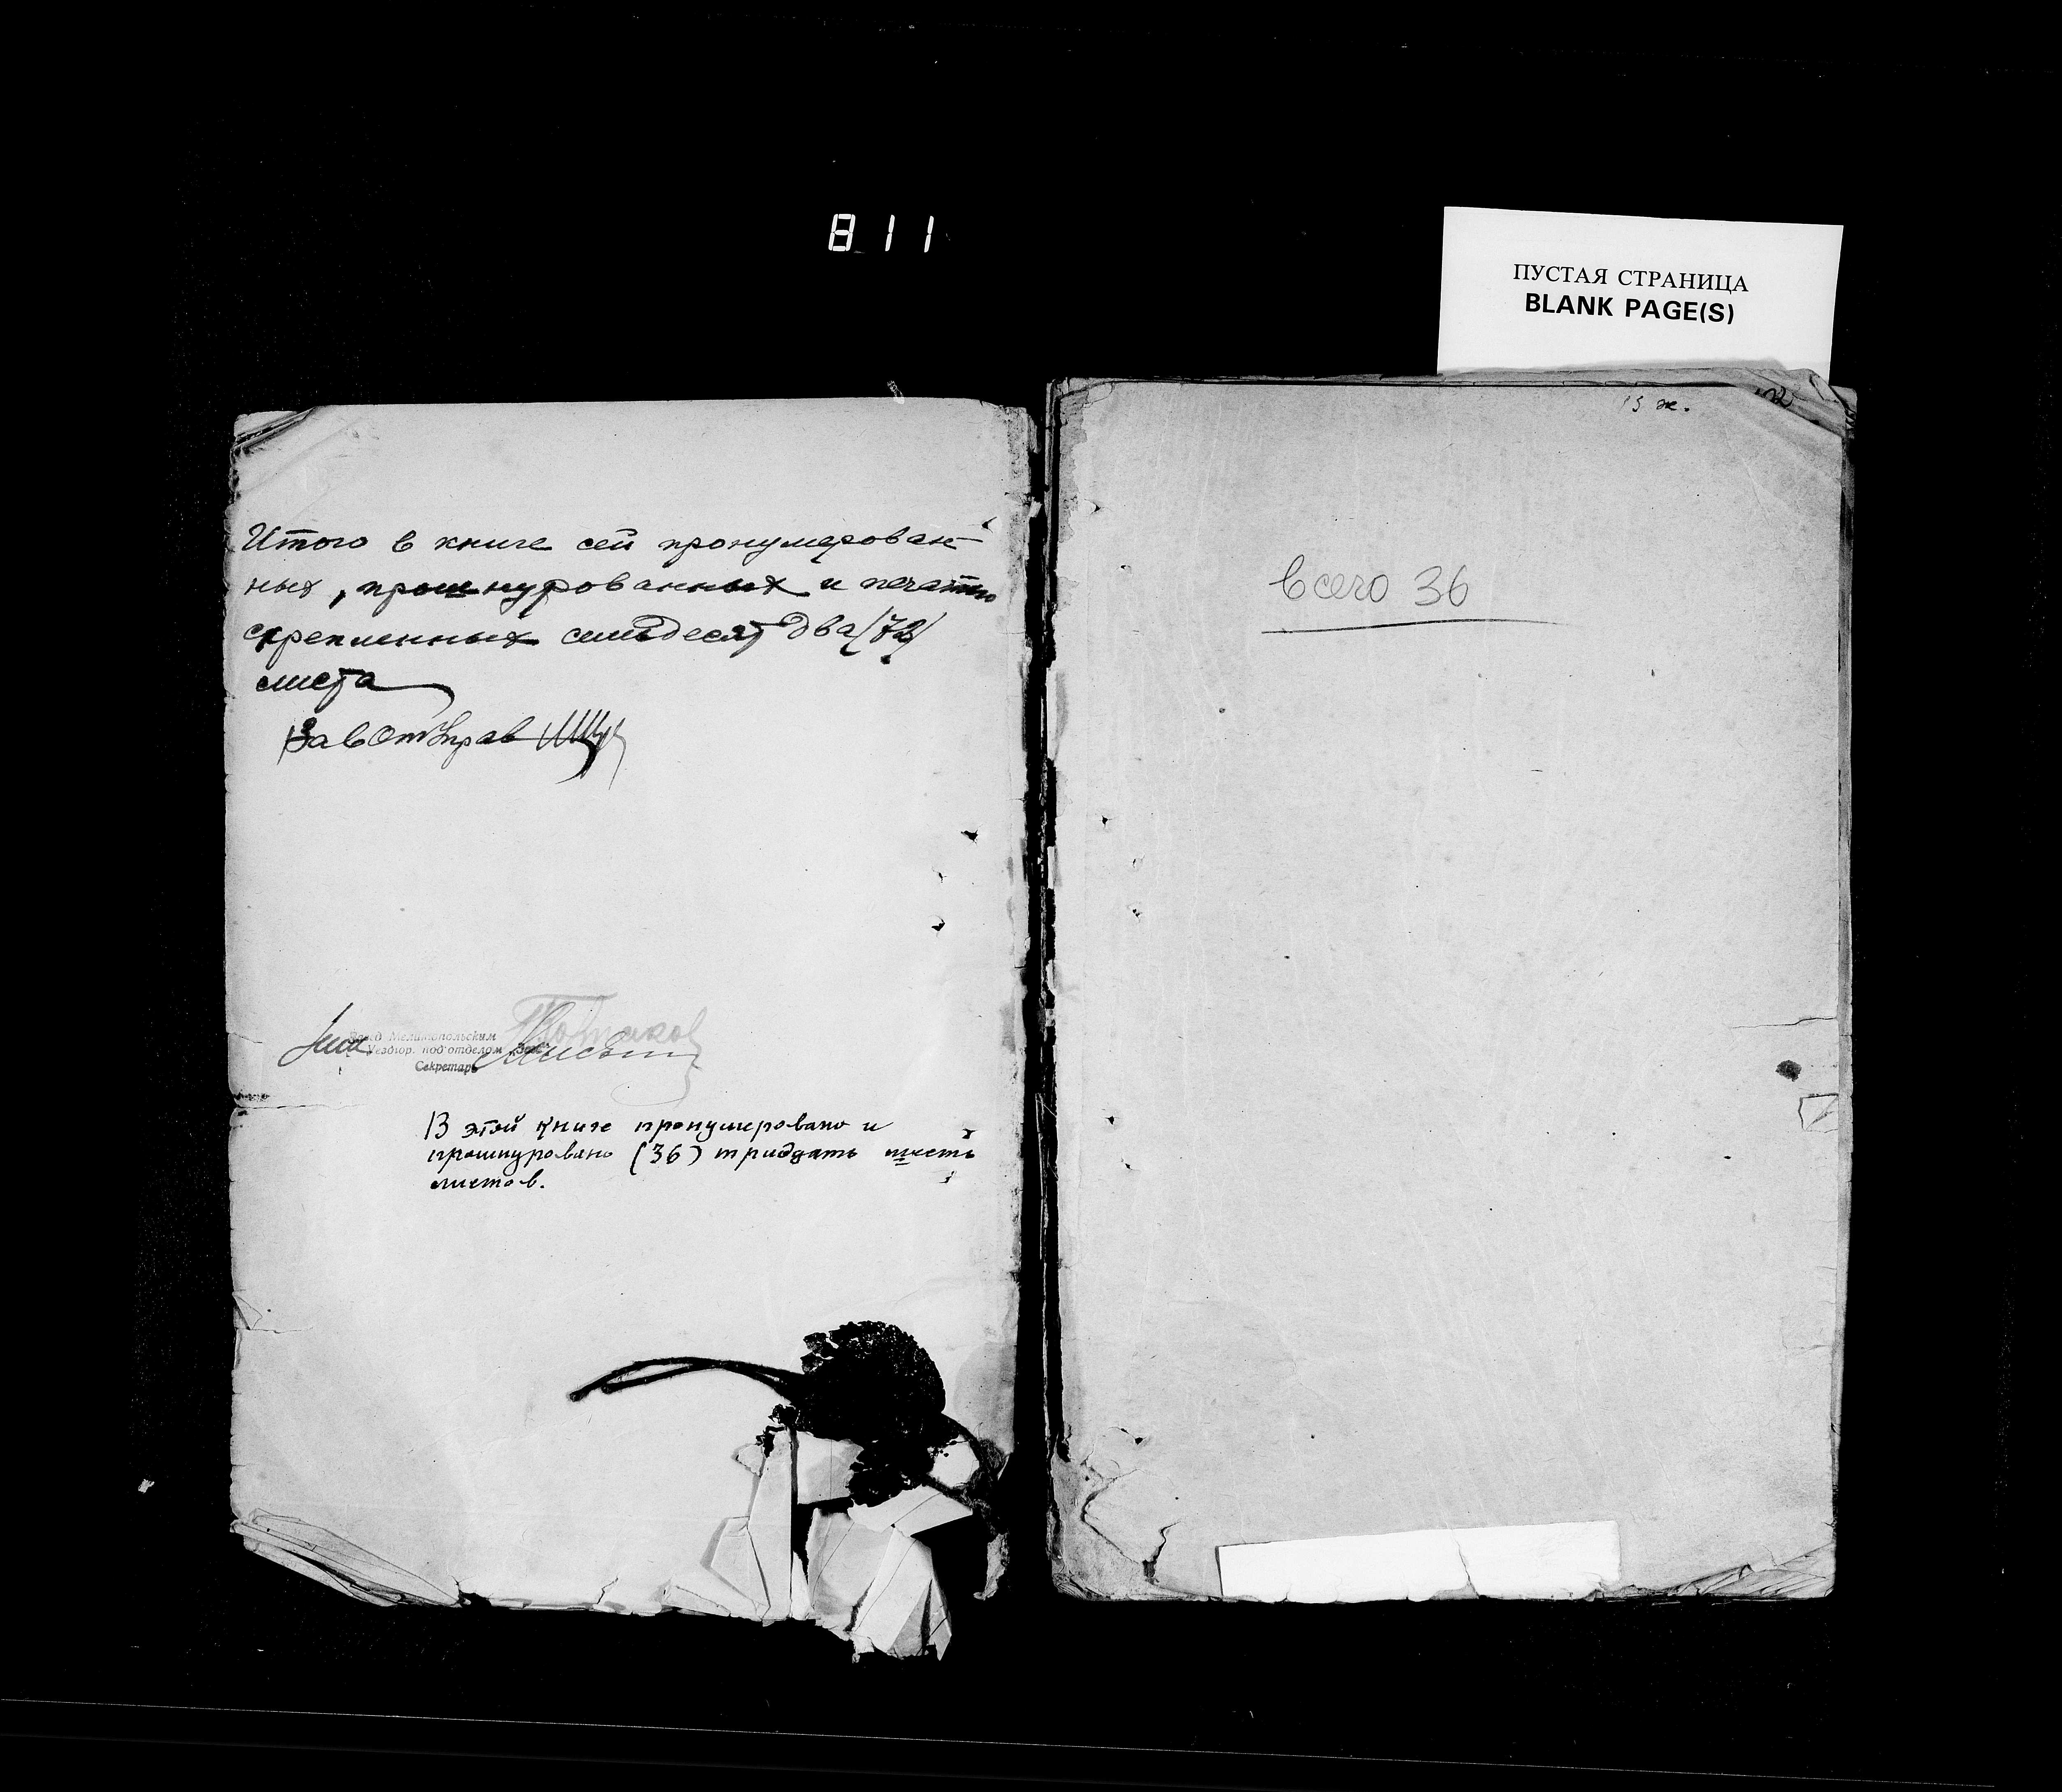 811
ПУСТАЯ СТРАНИЦА
BLANK PAGE(S)
13 ж.
Итого в книге сей пронумерован-
ных, прошнурованных и печатью
скрепленных семьдесят два /72/
листа
ЗавОтУправ
Завед Мелитопольским
Уездгор. под'отделом
Секретарь
В этой книге пронумеровано и
прошнуровано (36) тридцать шесть
листов.
Всего 36